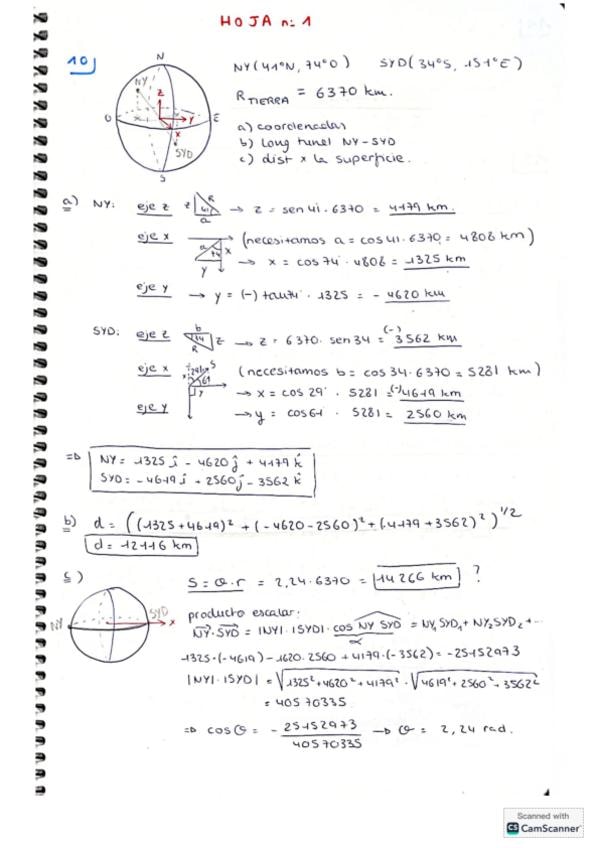 HOJA n: 1
10)
NY(41°N, 74°O) SYD(34°S, 151°E)
R TIERRA = 6370 km.
a) coordenadas
b) long tunel NY-SYD
c) dist x la superficie.
N
NY
z
O
y
E
x
SYD
S
a) NY: eje z z R 41 a → z = sen 41 · 6370 = 4179 km.
eje x a 74 x y (necesitamos a = cos 41 · 6370 = 4808 km)
→ x = cos 74° · 4808 = 1325 km
eje y → y = (-) tan 74° · 1325 = - 4620 km
SYD: eje z b 34 z R → z = 6370 · sen 34 = (-) 3562 km
eje x x 29 b S 61 y (necesitamos b = cos 34 · 6370 = 5281 km)
→ x = cos 29° · 5281 = (-) 4619 km
eje y → y = cos 61 · 5281 = 2560 km
⇒ NY = 1325 i - 4620 j + 4179 k
SYD = - 4619 i + 2560 j - 3562 k
b) d = ((1325 + 4619)² + (-4620 - 2560)² + (4179 + 3562)²)^1/2
d = 12116 km
c) S = θ · r = 2,24 · 6370 = 14266 km ?
NY
SYD
x
producto escalar:
NY · SYD = |NY| · |SYD| · cos NY SYD = NY₁ SYD₁ + NY₂ SYD₂ + ..
α
1325 · (-4619) - 1620 · 2560 + 4179 · (-3562) = - 25152973
|NY| · |SYD| = √1325² + 4620² + 4179² · √4619² + 2560² - 3562²
= 40570335
⇒ cos θ = - 25152973 / 40570335 → θ = 2,24 rad.
Scanned with
CS CamScanner